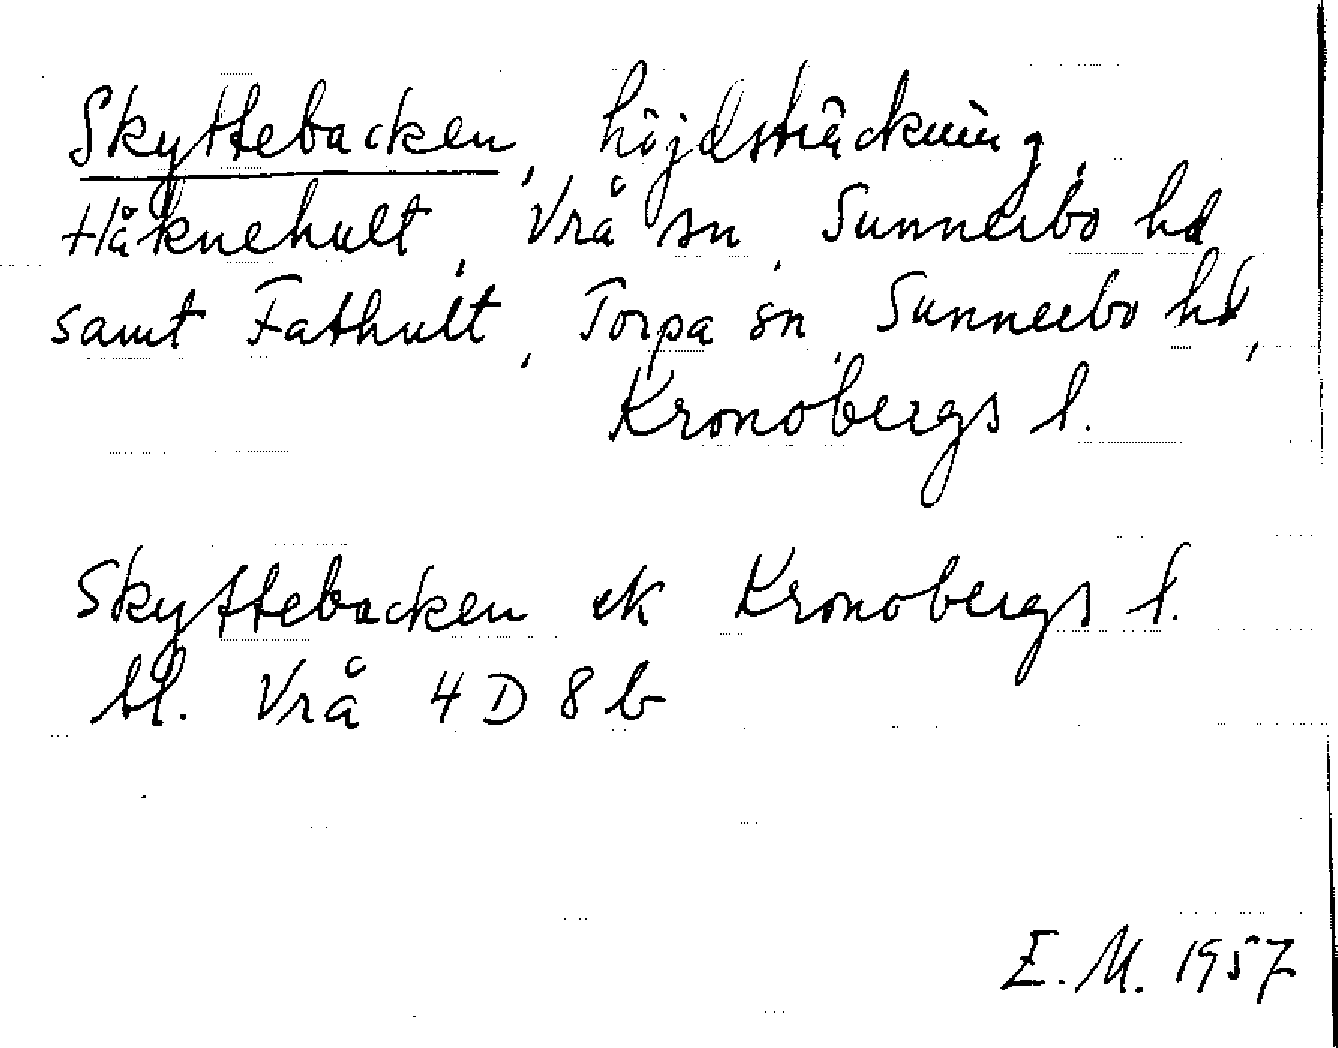 Skyttebacken, höjdsträckning,
Håknehult, Vrå sn, Sunnerbo hd
samt Fathult, Torpa sn, Sunnerbo hd,
Kronobergs l.
Skyttebacken ek Kronobergs l.
bl. Vrå 4 D 8 b
E. M. 1957